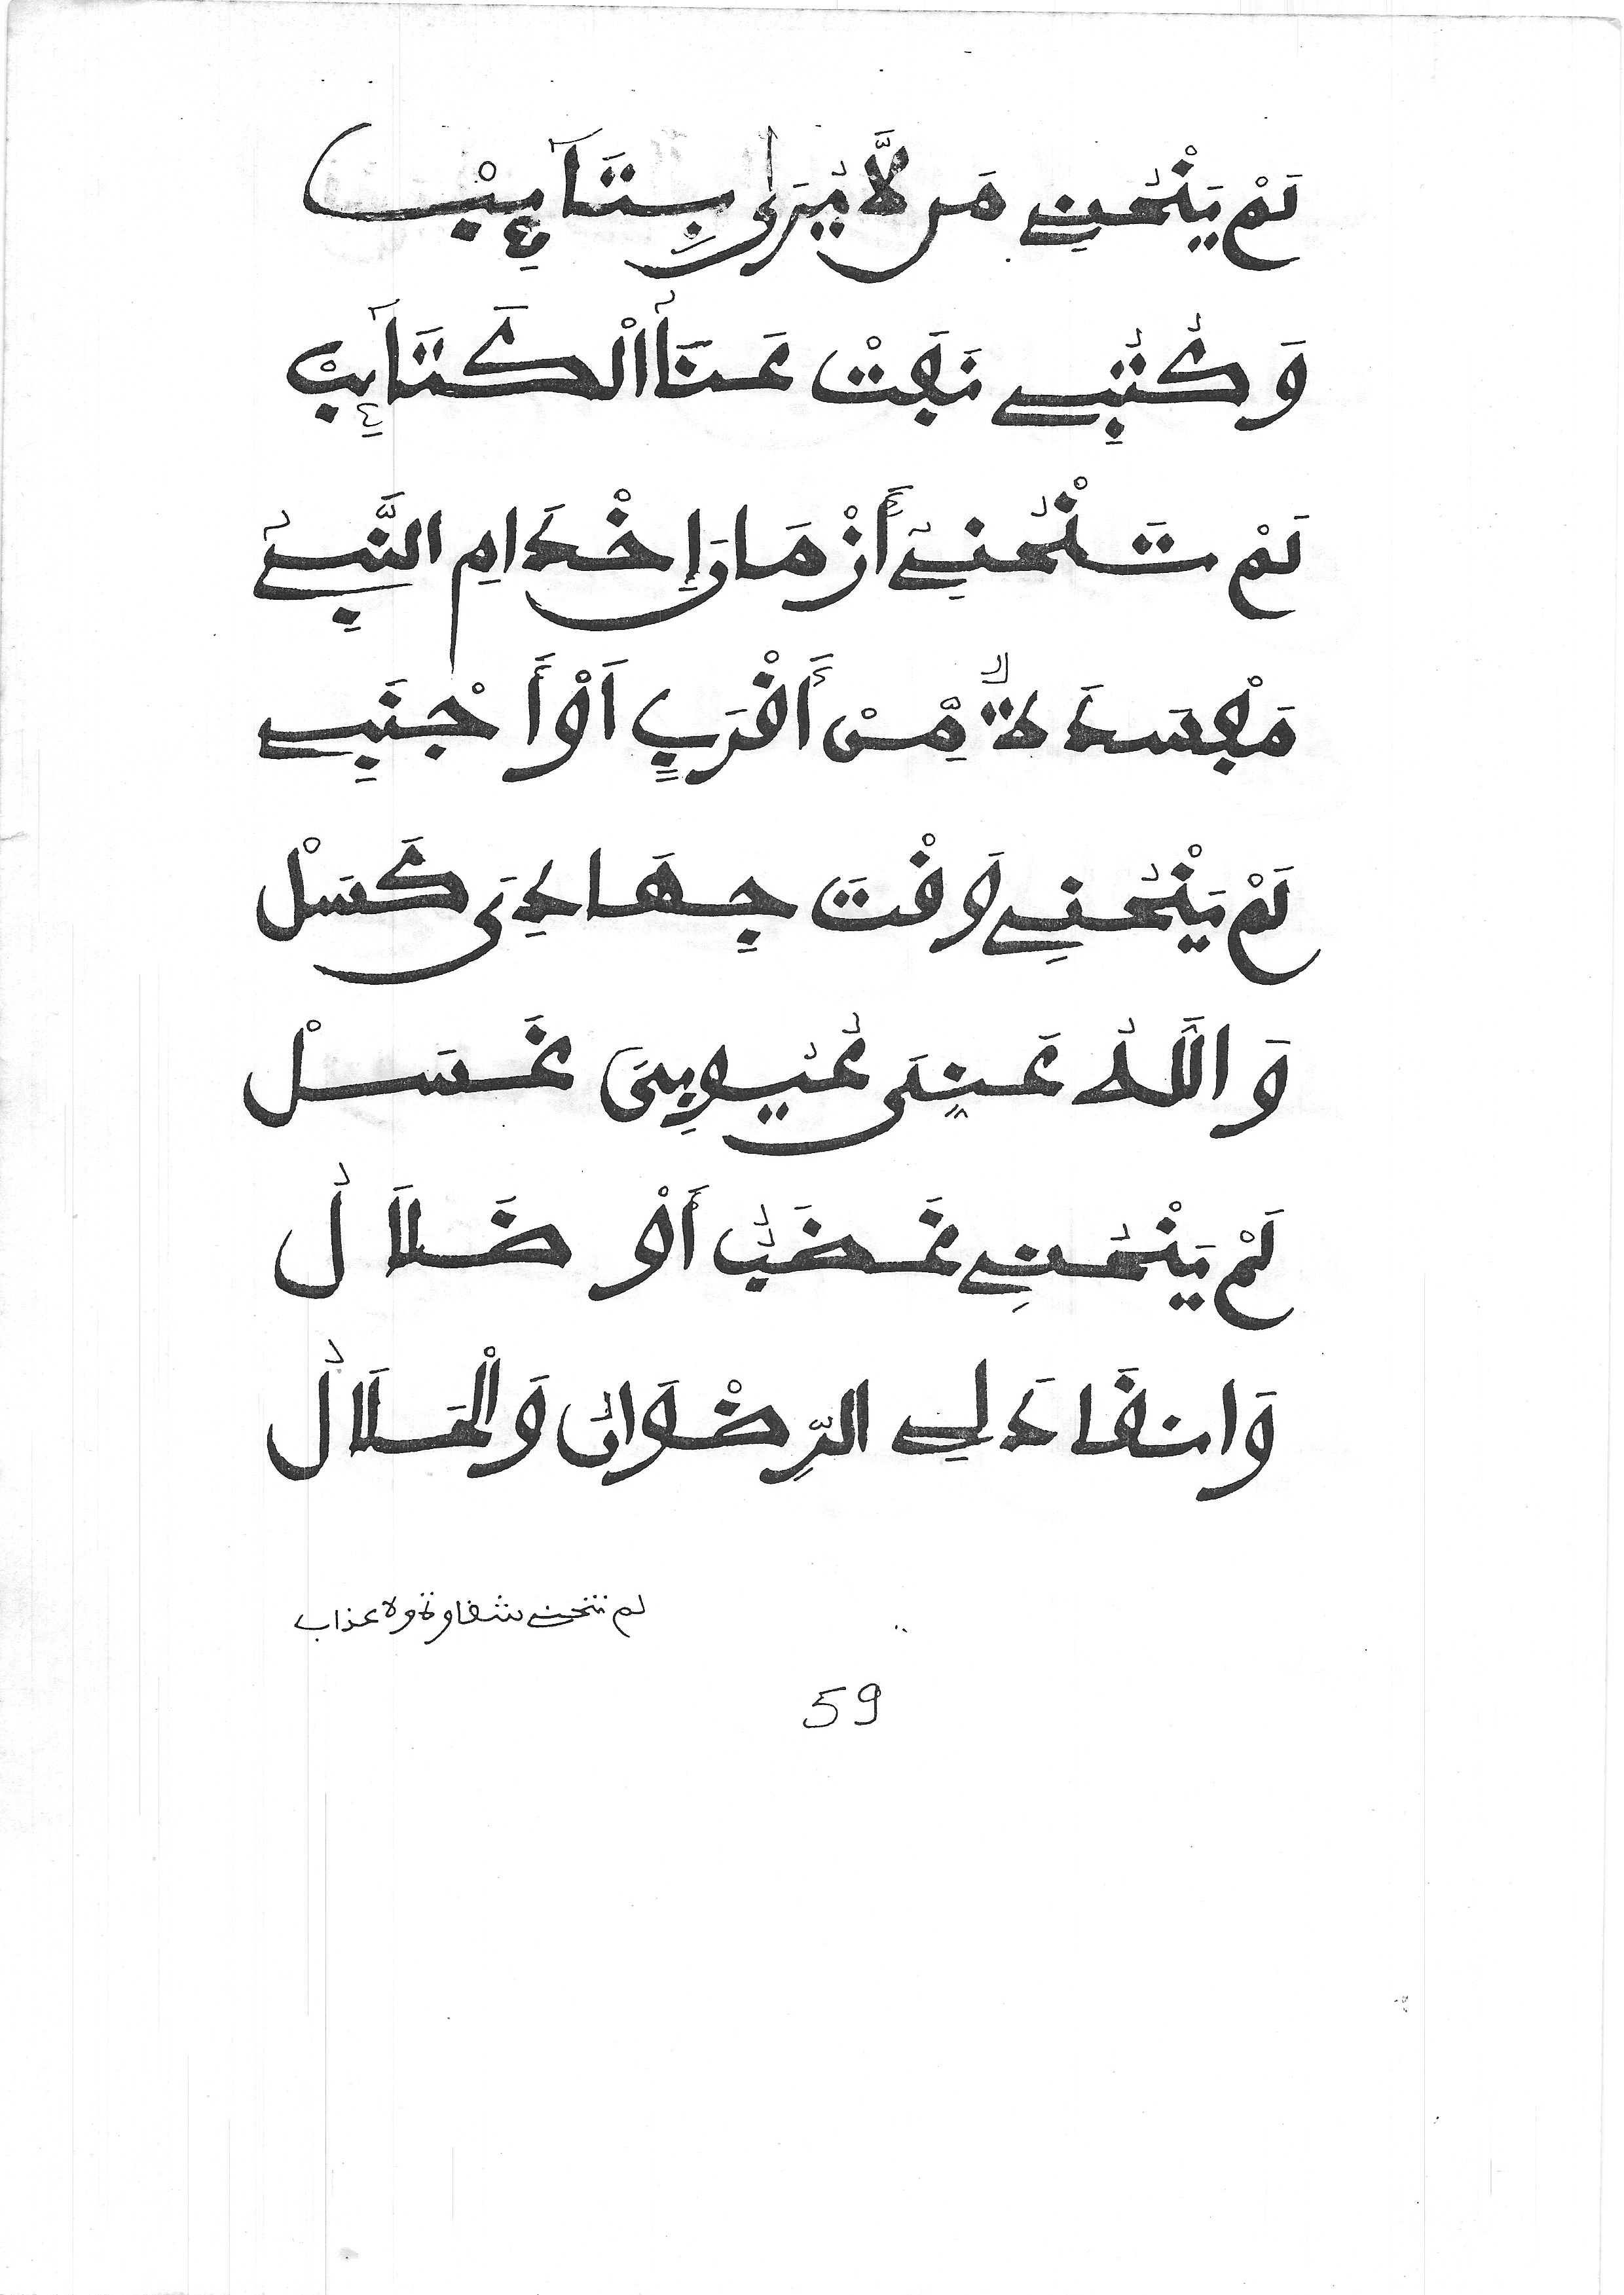 لَمْ يَنْحُنِي مَن لَّا يُرَىٰ بِتَآئِبْ
وَكُتُبِي نَفَتْ عَنَا الْكَتَآئِبْ
لَمْ تَنْحُنِي أَزْمَانَ إِخْدَامِ النَّبِي
مَفْسَدَةٌ مِّنْ أَقْرَبٍ اَوْ أَجْنَبِي
لَمْ يَنْحُنِي وَقْتَ جِهَادِيَ كَسَلْ
وَاللَّهُ عَنِّي عُيُوبِيَ غَسَلْ
لَمْ يَنْحُنِي غَضَبٌ أَوْ ضَلَالُ
وَانقَادَ لِي الرِّضْوَانُ وَالْحَلَالُ
لم تنحني شقاوة ولا عذاب
59